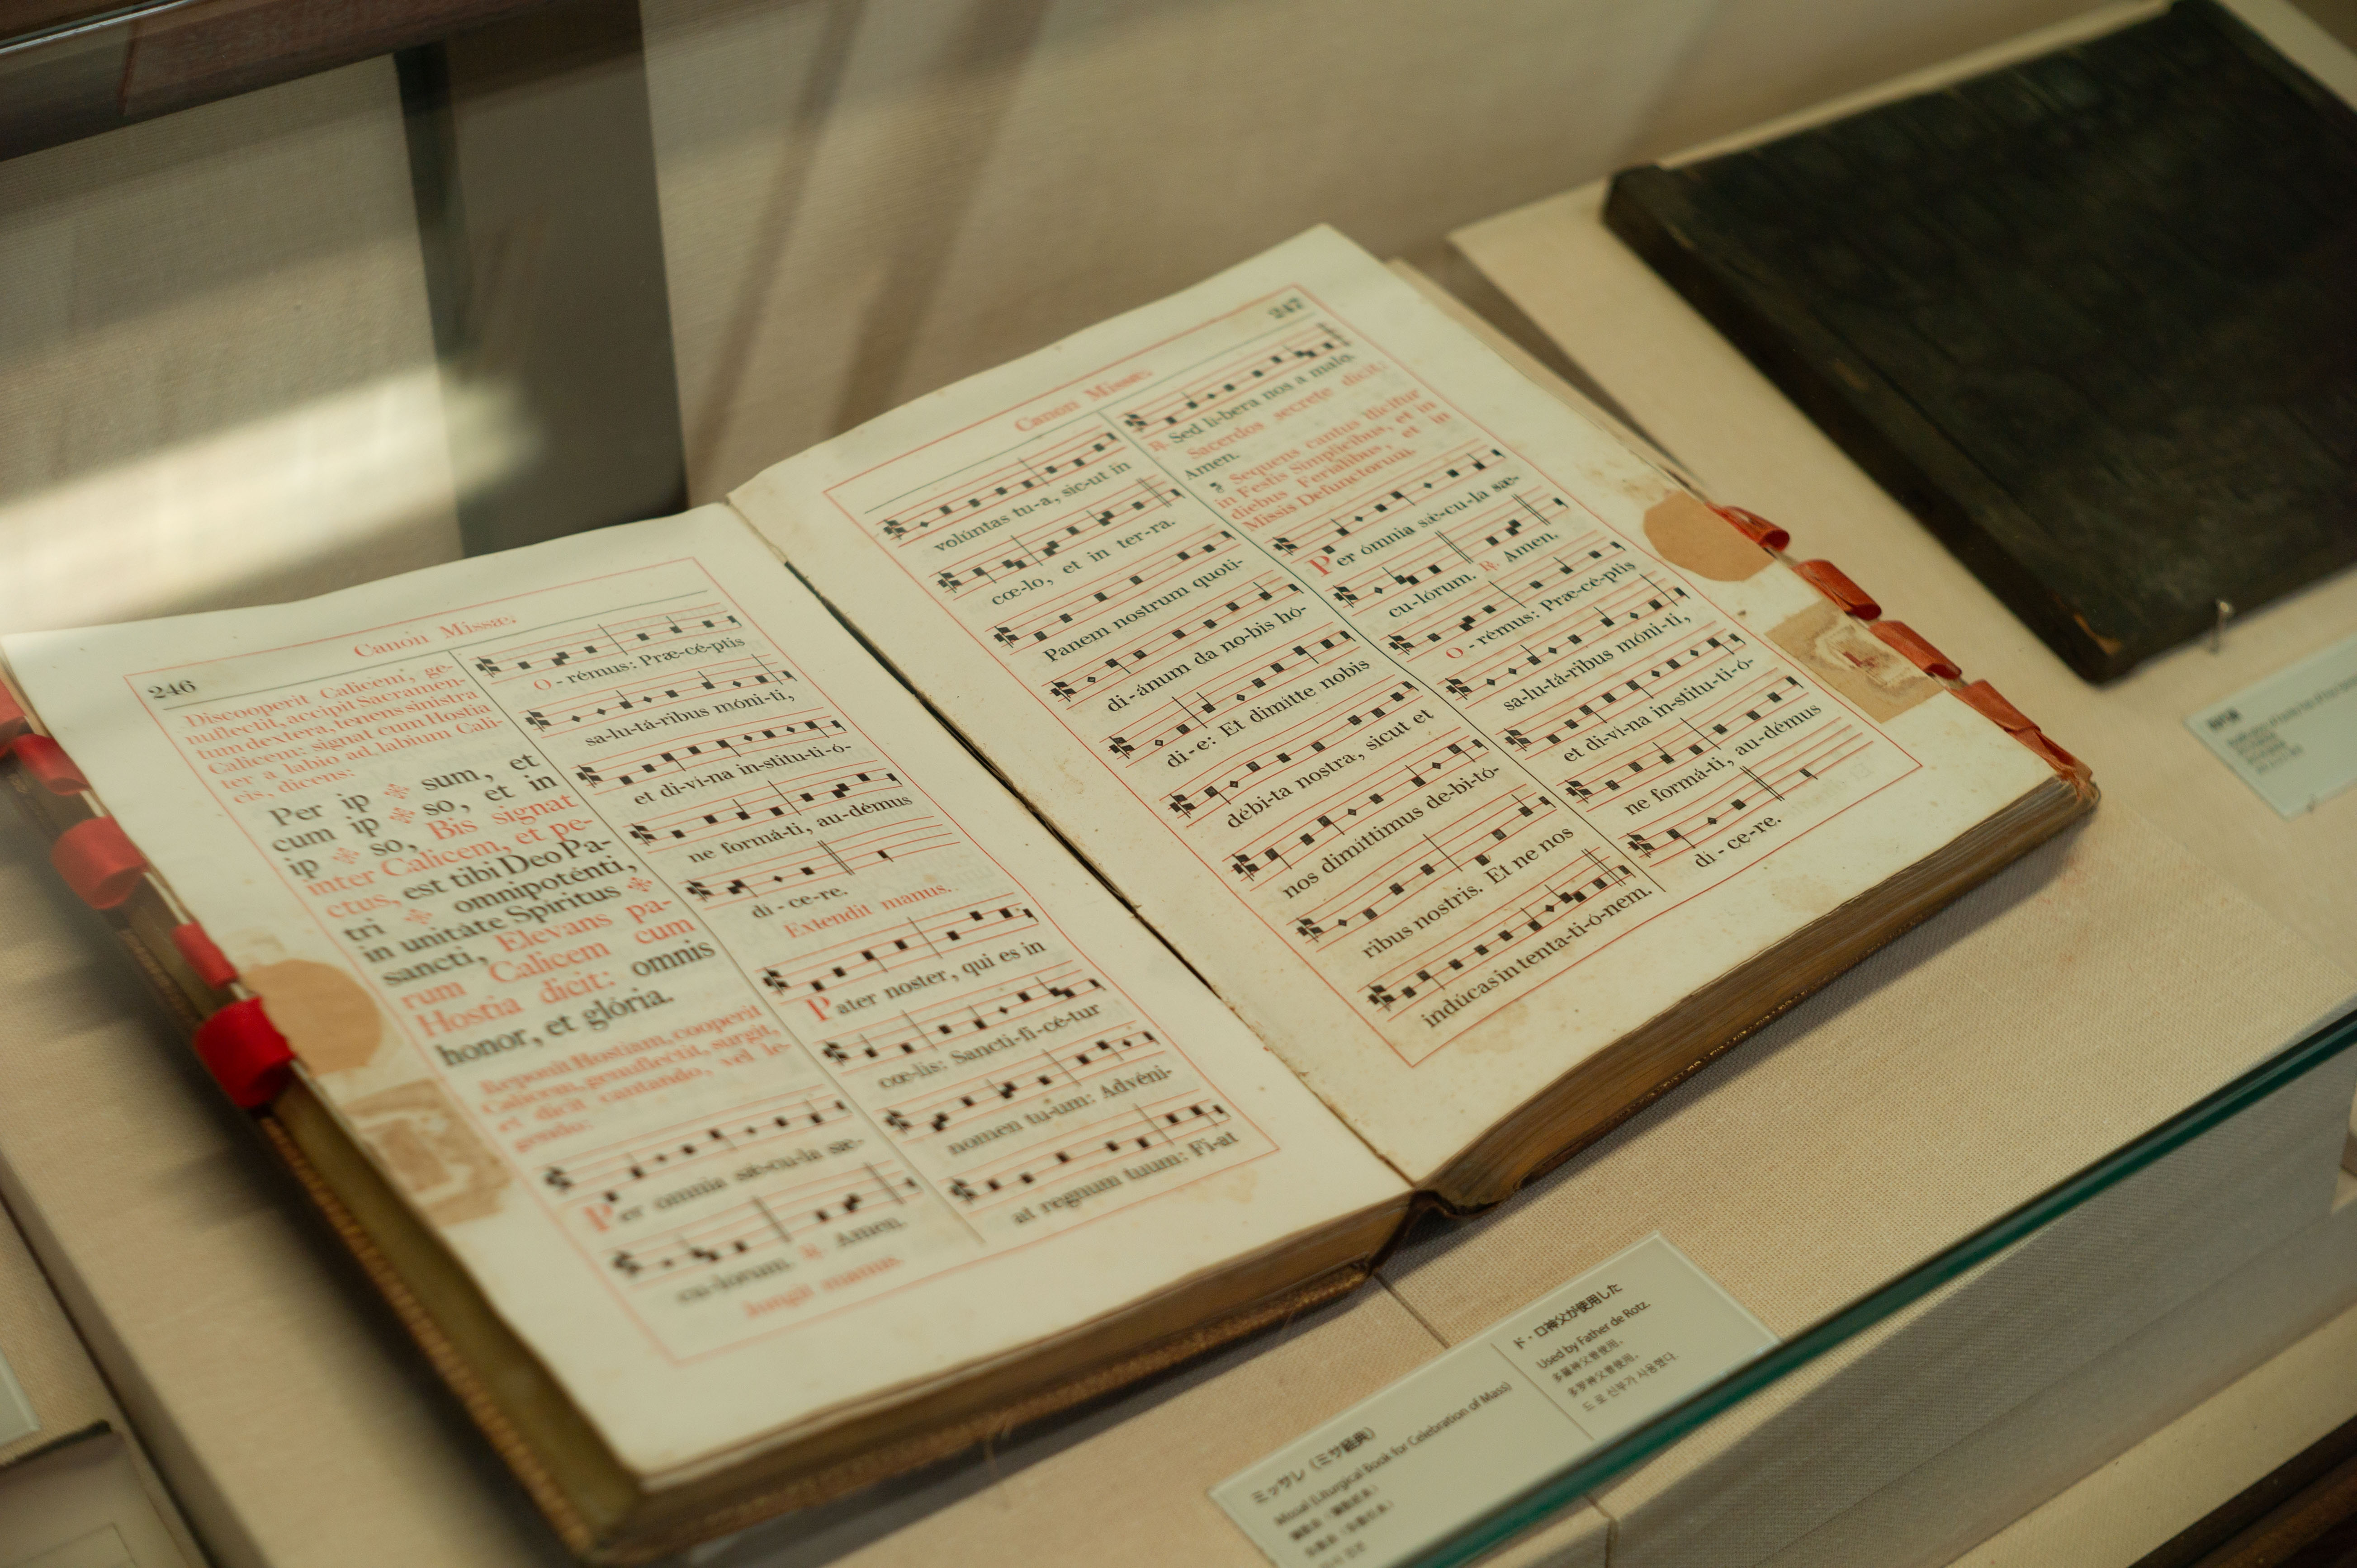 246
Canon Missæ.
Discooperit Calicem, ge-
nuflectit, accipit Sacramen-
tum dextera, tenens sinistra
Calicem: signat cum Hostia
ter a labio ad labium Cali-
cis, dicens:
Per ip ✠ sum, et
cum ip ✠ so, et in
ip ✠ so, Bis signat
inter Calicem, et pe-
ctus, est tibi Deo Pa-
tri ✠ omnipoténti,
in unitate Spiritus ✠
sancti, Elevans pa-
rum Calicem cum
Hostia dicit: omnis
honor, et glória.
Reponit Hostiam, cooperit
Calicem, genuflectit, surgit,
et dicit cantando, vel le-
gendo:
Per omnia sæ-cu-la sæ-
cu-lorum. ℟. Amen.
Jungit manus.
O - rémus: Præ-cé-ptis
sa-lu-tá-ribus móni-ti,
et di-ví-na in-stitu-ti-ó-
ne formá-ti, au-démus
di - ce-re.
Extendit manus.
Pater noster, qui es in
cœ-lis: Sancti-fi-cé-tur
nomen tu-um: Advéni-
at regnum tuum: Fi-at
247
Canon Missæ.
volúntas tu-a, sic-ut in
cœ-lo, et in ter-ra.
Panem nostrum quoti-
di-ánum da no-bis hó-
di-e: Et dimitte nobis
débi-ta nostra, sicut et
nos dimittimus de-bi-tó-
ribus nostris. Et ne nos
indúcas in tenta-ti-ó-nem.
℟. Sed li-bera nos a malo.
Sacerdos secrete dicit:
Amen.
Sequens cantus dicitur
in Festis Simplicibus, et in
diebus Ferialibus, et in
Missis Defunctorum.
Per ómnia sæ-cu-la sæ-
cu-lórum. ℟. Amen.
O - rémus: Præ-cé-ptis
sa-lu-tá-ribus móni-ti,
et di-ví-na in-stitu-ti-ó-
ne formá-ti, au-démus
di - ce-re.
ミッサレ（ミサ経典）
Missal (Liturgical Book for Celebration of Mass)
ド・ロ神父が使用した
Used by Father de Rotz.
多羅神父曾使用。
多罗神父曾使用。
드 로 신부가 사용했다.